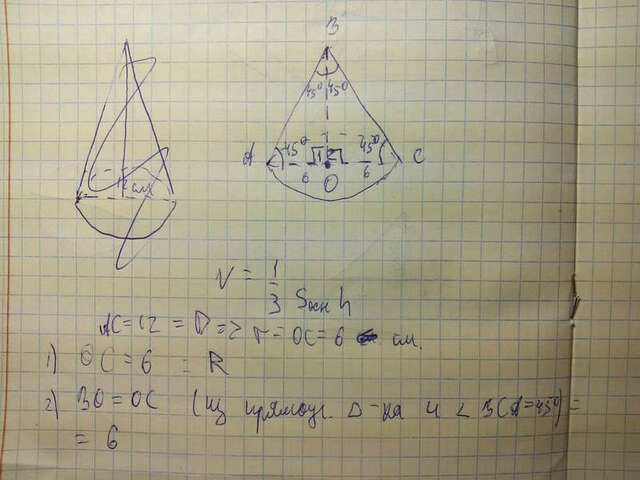 B
45° 45°
A 45° 45° C
6 O 6
V = 1/3 Sосн h
AC=12 = D => r = OC = 6 см.
1) OC = 6 = R
2) BO = OC (из прямоуг. Δ-ка и ∠ BCA=45°) =
= 6